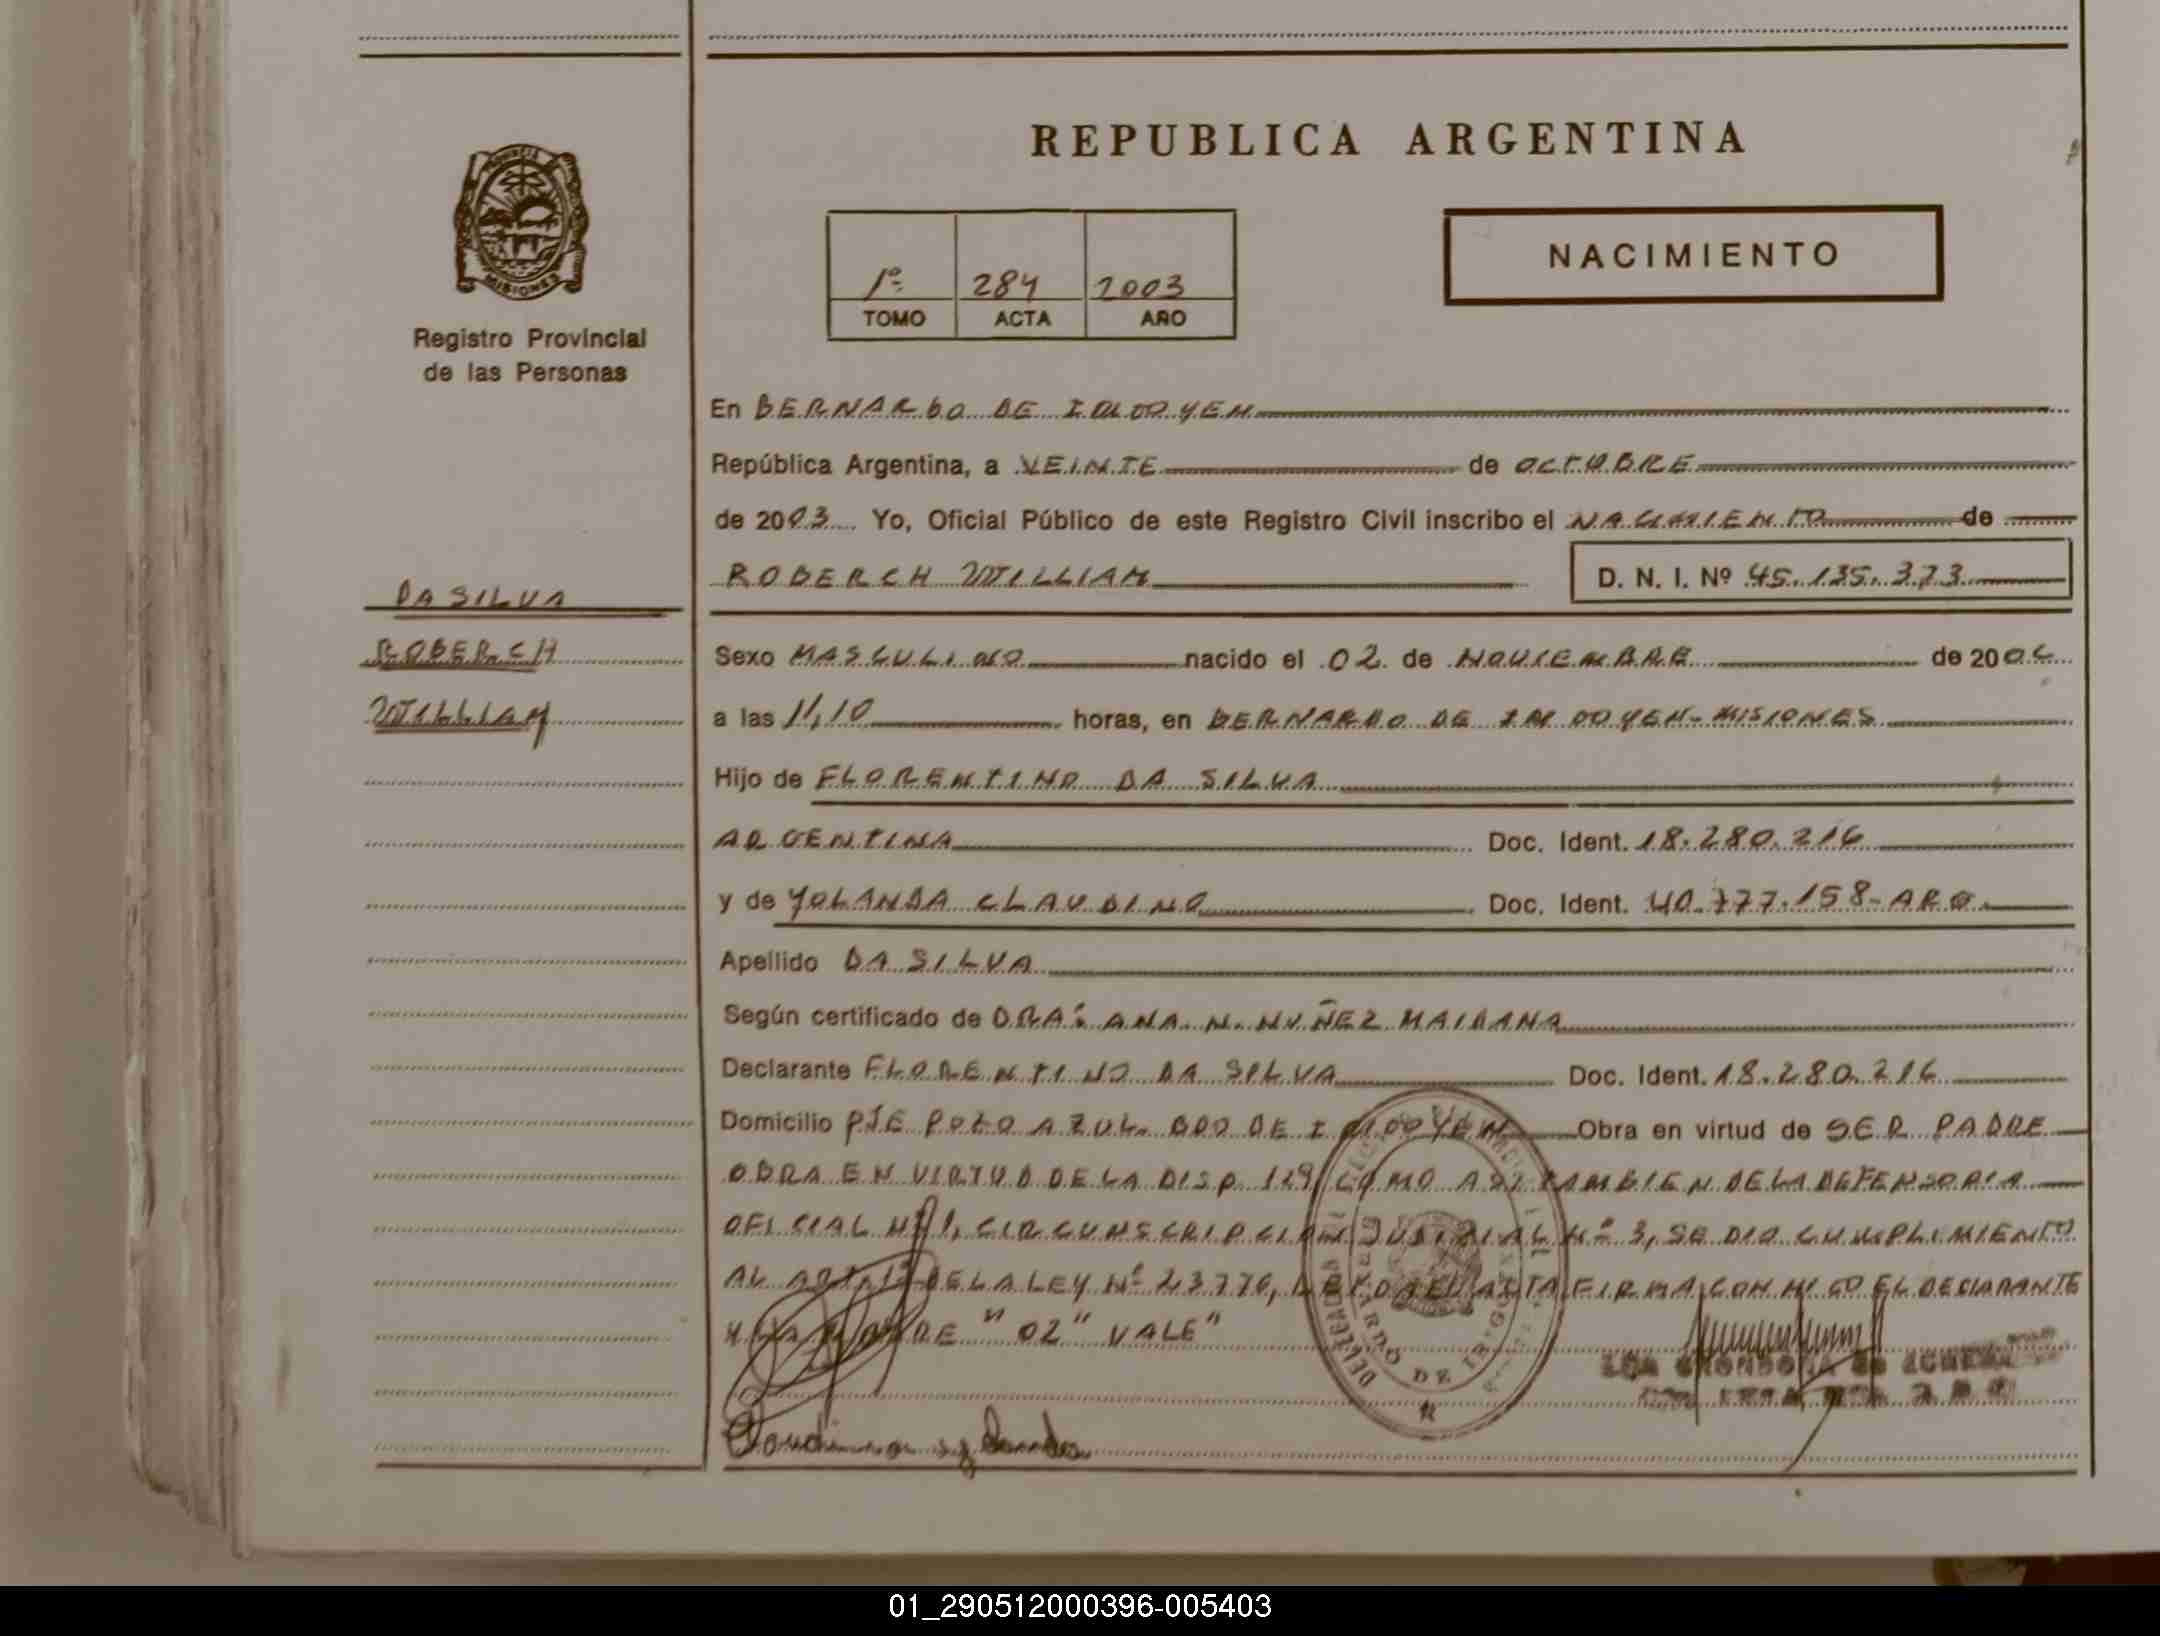 PROVINCIA
MISIONES
Registro Provincial
de las Personas
DA SILVA
ROBERCH
WILLIAM
REPUBLICA ARGENTINA
1º 284 2003
TOMO ACTA AÑO
NACIMIENTO
En BERNARDO DE IRIGOYEN
República Argentina, a VEINTE de OCTUBRE
de 2003 Yo, Oficial Público de este Registro Civil inscribo el NACIMIENTO de
ROBERCH WILLIAM D. N. I. Nº 45.135.373
Sexo MASCULINO nacido el 02 de NOVIEMBRE de 200
a las 11,10 horas, en BERNARDO DE IRIGOYEN - MISIONES
Hijo de FLORENTINO DA SILVA
ARGENTINA Doc. Ident. 18.280.216
y de YOLANDA CLAUDINO Doc. Ident. 40.777.158-ARG.
Apellido DA SILVA
Según certificado de DRA: ANA. N. NUÑEZ MAIDANA
Declarante FLORENTINO DA SILVA Doc. Ident. 18.280.216
Domicilio PJE POZO AZUL. BDO DE IRIGOYEN Obra en virtud de SER PADRE
OBRA EN VIRTUD DE LA DISP. 129, COMO ASI TAMBIEN DE LA DEFENSORIA
OFICIAL Nº 1, CIRCUNSCRIPCION JUDICIAL Nº 3, SE DIO CUMPLIMIENTO
AL ART. 1º DE LA LEY Nº 23776, LEIDA EL ACTA FIRMA CON MIGO EL DECLARANTE
Y LA MADRE "02" VALE"
DELEGACION
BERNARDO DE IRIGOYEN
01_290512000396-005403